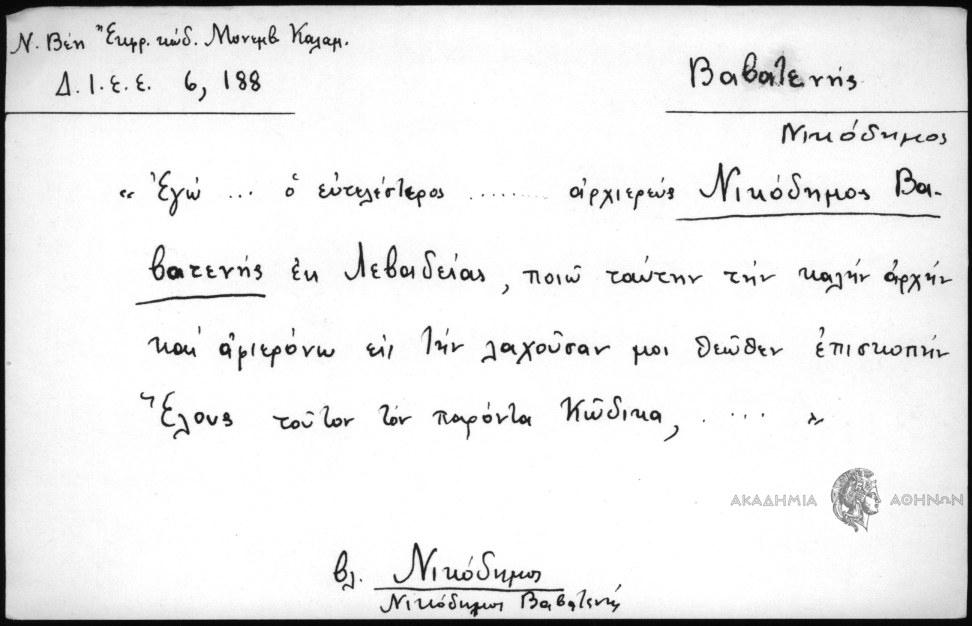 Ν. Βέη Ἔκφρ. κώδ. Μονεμβ. Καλαμ.
Δ. Ι. Ε. Ε. 6, 188
Βαβατενής
Νικόδημος
« Ἐγώ ... ὁ εὐτελέστερος ....... ἀρχιερεύς Νικόδημος Βα-
βατενής ἐκ Λεβαδείας, ποιῶ ταύτην τήν καλήν ἀρχήν
καί ἀφιερόνω εἰς τήν λαχοῦσαν μοι θεῶθεν ἐπισκοπήν
Ἕλους τοῦτον τόν παρόντα Κώδικα, . ... »
ΑΚΑΔΗΜΙΑ ΑΘΗΝΩΝ
βλ. Νικόδημος
Νικόδημος Βαβατενής